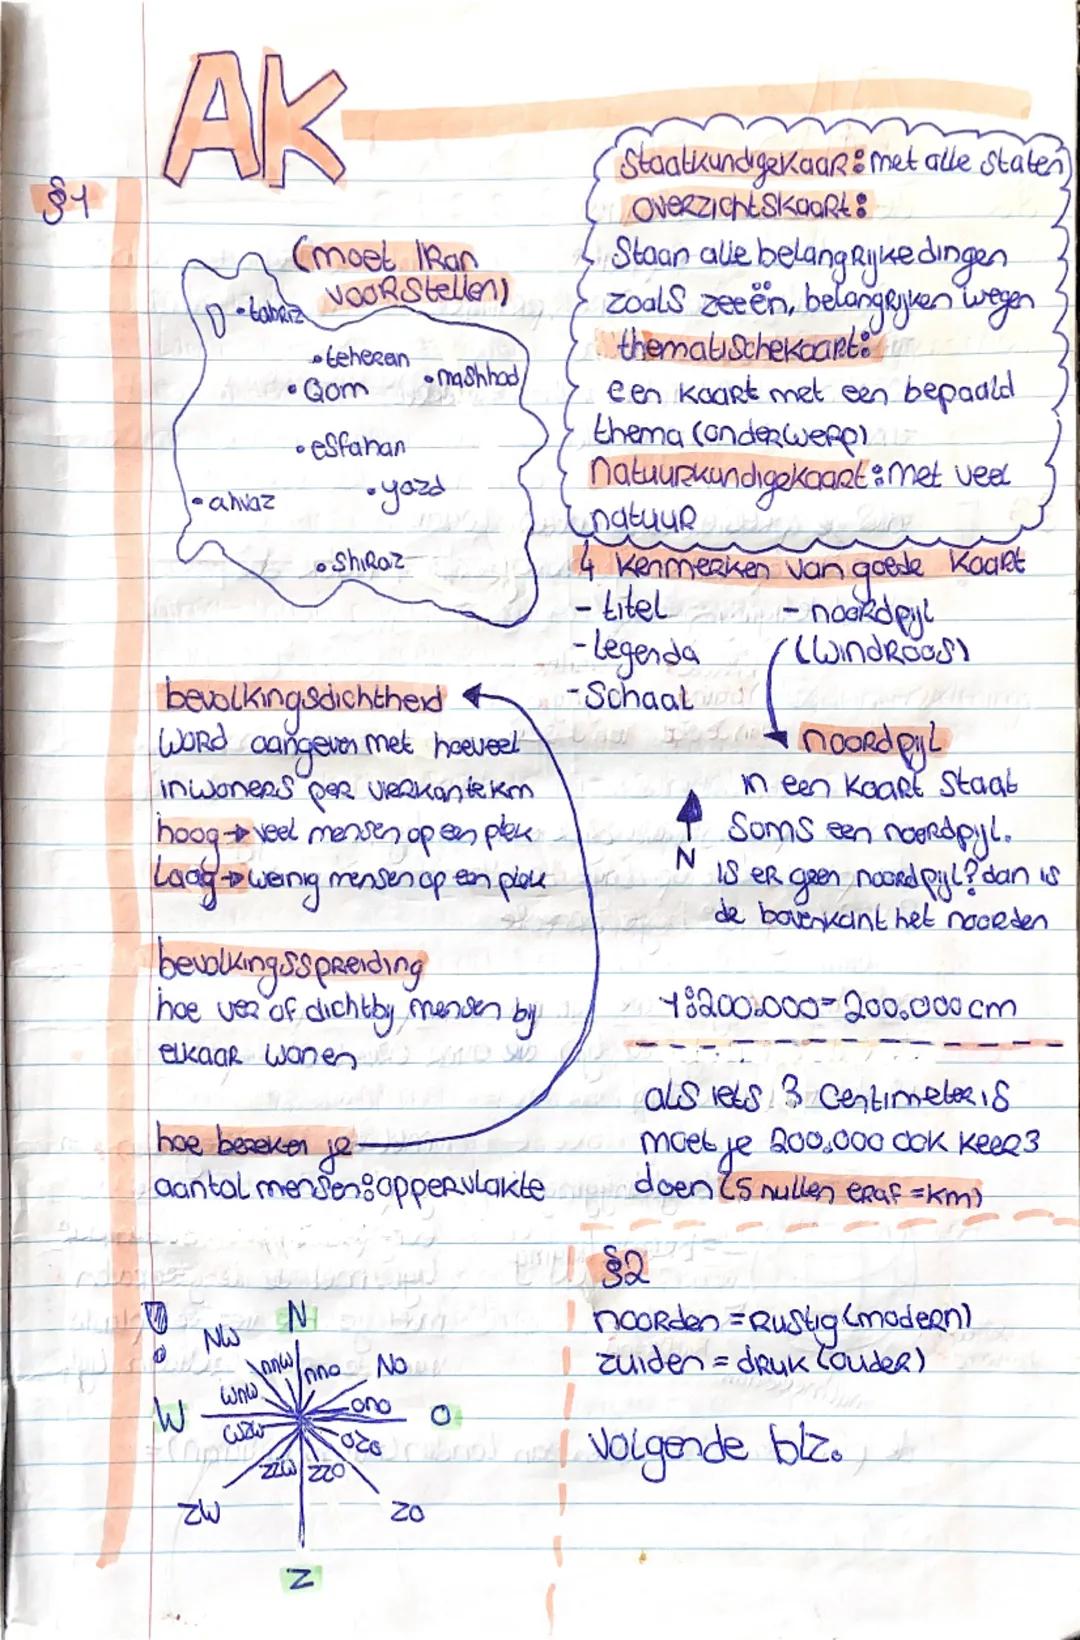 AK
§1
(moet IRan
voorstellen)
• tabriz
• teheran
• Qom
• mashhad
• esfahan
• yazd
• ahvaz
• Shiraz
bevolkingsdichtheid
word aangeven met hoeveel
inwoners per vierkante km
hoog → veel mensen op een plek
Laag → weinig mensen op een plek
bevolkingsspreiding
hoe ver of dichtbij mensen bij
elkaar wonen
hoe bereken je
aantal mensen : oppervlakte
!
N
NW
nnw
nno
NO
wnw
ono
W
O
wzw
ozo
zzw
zzo
ZW
ZO
Z
Staatkundigekaar: met alle Staten
overzichtskaart:
Staan alle belangrijke dingen
zoals zeeën, belangrijken wegen
thematischekaart:
een kaart met een bepaald
thema (onderwerp)
Natuurkundigekaart: met veel
natuur
4 kenmerken van goede kaart
- titel
- noordpijl
- Legenda
(windroos)
- Schaal
noordpijl
in een kaart Staat
Soms een noordpijl.
N
is er geen noordpijl? dan is
de bovenkant het noorden
1:200.000 = 200.000 cm
als iets 3 Centimeter is
moet je 200.000 ook keer 3
doen (5 nullen eraf = km)
§2
noorden = Rustig (modern)
zuiden = druk (ouder)
Volgende blz.